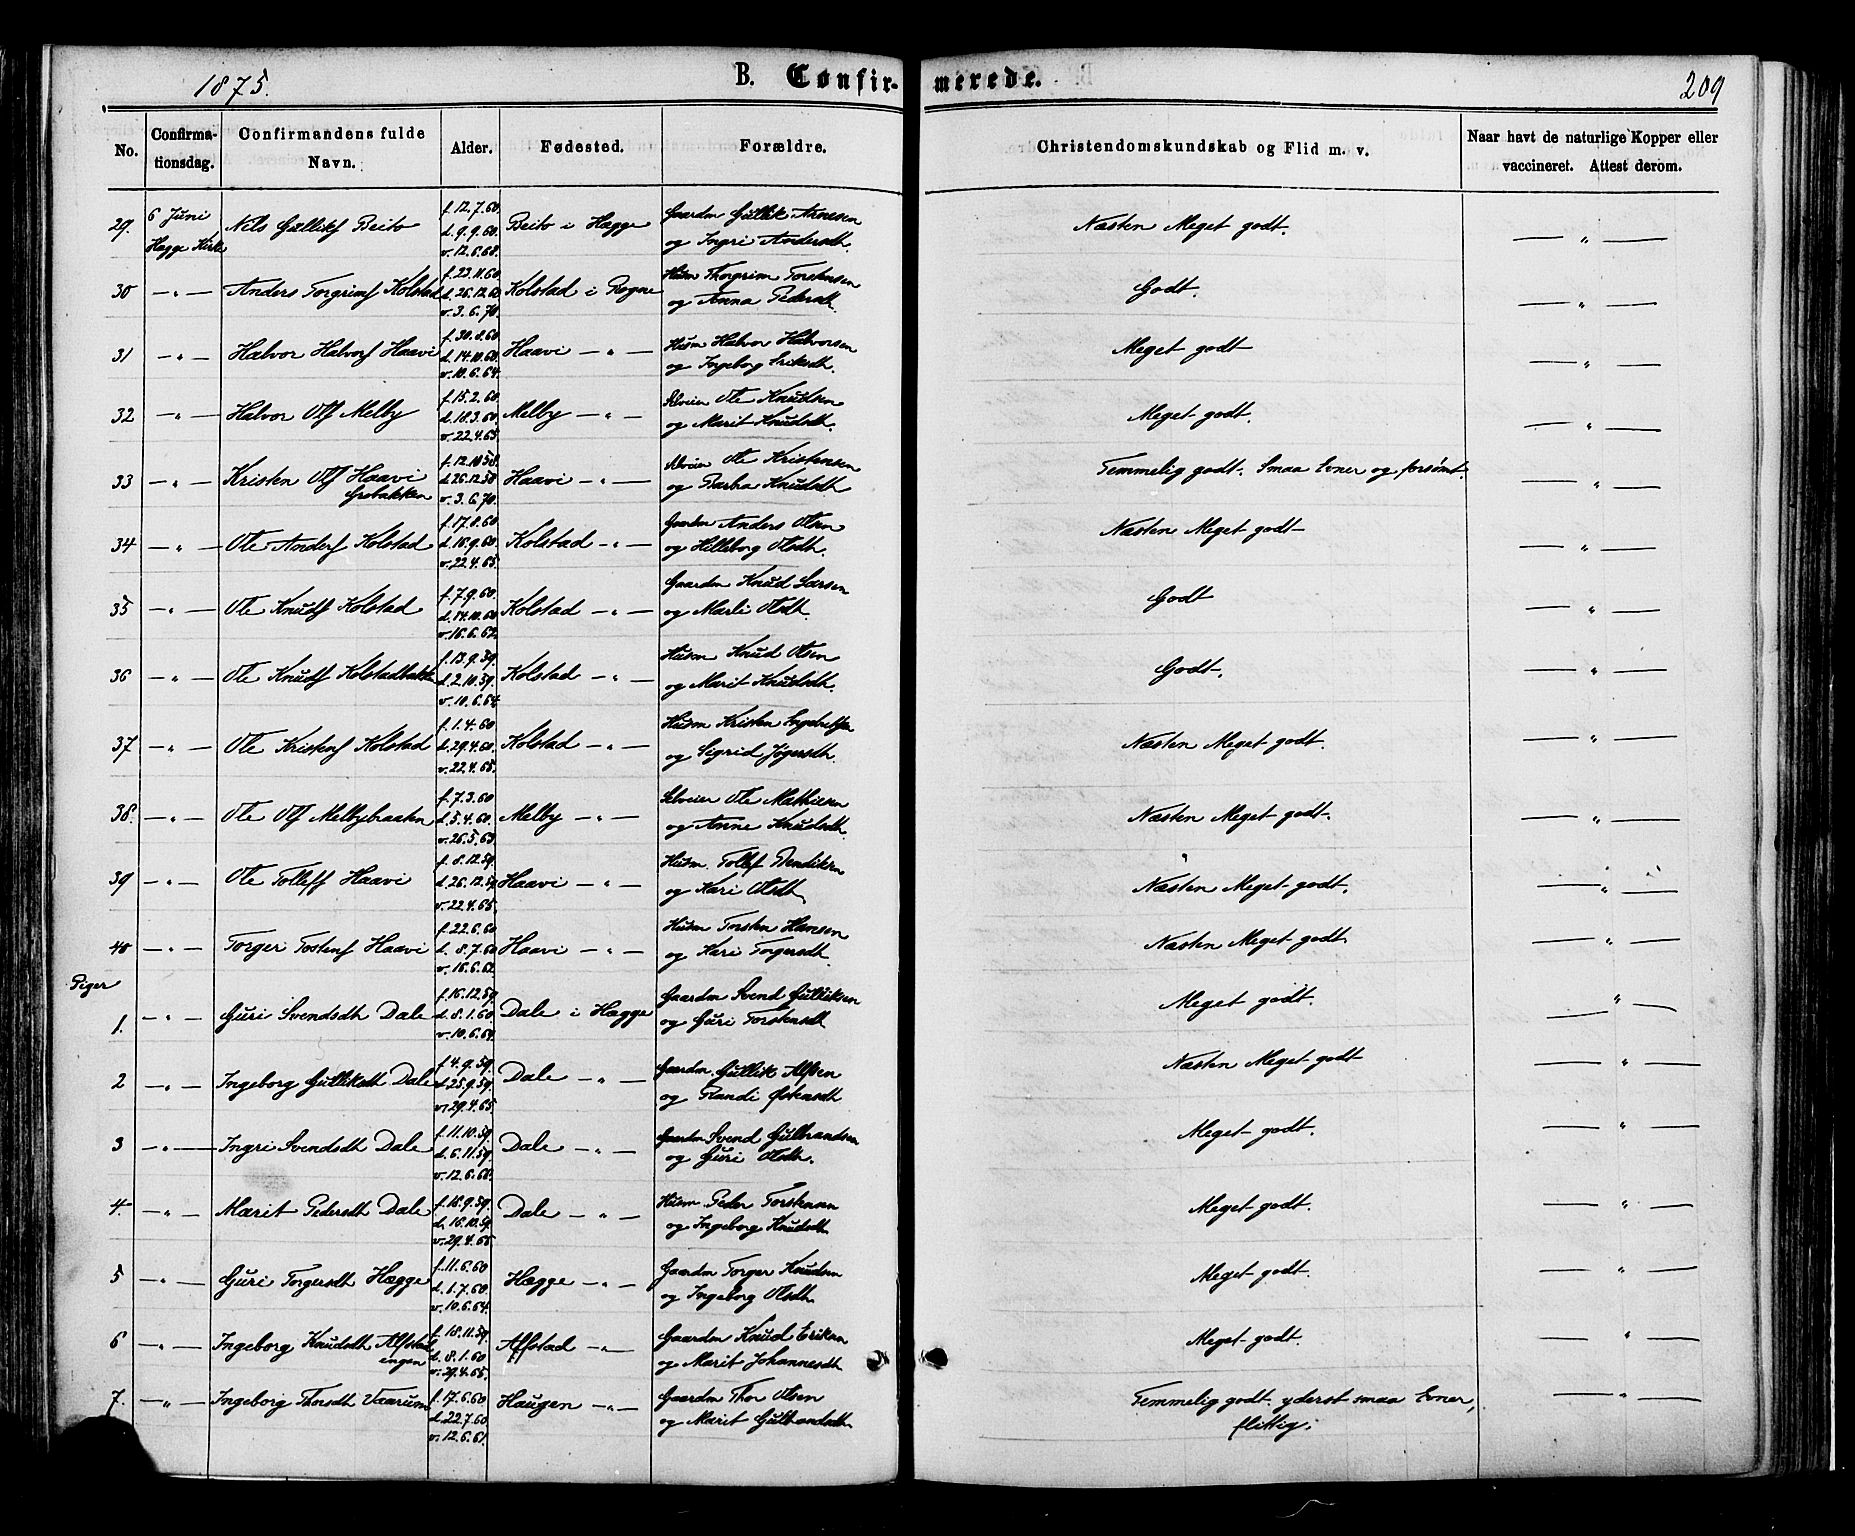 1875.
B. Confir-merede.
209
No.
Confirma-
tionsdag.
Confirmandens fulde
Navn.
Alder.
Fødested.
Forældre.
Christendomskundskab og Flid m. v.
Naar havt de naturlige Kopper eller
vaccineret. Attest derom.
29. 6 Juni Hegge Kirke Nels Gullikf Beito f. 12.7.60. d. 9.9.60. v. 12.6.68. Beito i Hegge Gaardm Gullik Arnesen og Ingri Andersdt. Næsten Meget godt. — " —
30 — " — Anders Torgrimf Kolstad f. 23.11.60. d. 26.12.60 v. 3.6.70. Kolstad i Rogne Husm Thorgrim Torstensen og Anna Pedersdt. Godt. — " —
31 — " — Halvor Halvorf Haavi f. 30.8.60 d. 14.10.60. v. 10.6.64. Haavi — " — Husm Halvor Halvorsen og Ingeborg Eriksdt. Meget godt — " —
32 — " — Halvor Olf Melby f. 15.2.60. d. 18.3.60. v. 22.4.65 Melby — " — Selveier Ole Knudsen og Marit Knudsdt. Meget godt. — " —
33 — " — Kristen Olf Haavi f. 12.10.58. d. 26.12.58 v. 3.6.70. Haavi — " — Selveier Ole Kristensen og Barba Knudsdt Temmelig godt. Smaa Evner og forsømt. — " —
34 — " — Ole Andersf Kolstad f. 17.8.60. d. 16.9.60. v. 22.4.65. Kolstad — " — Gaardm Anders Olsen og Hilleborg Olsdt. Næsten Meget godt — " —
35 — " — Ole Knudsf Kolstad f. 7.9.60. d. 14.10.60 v. 16.6.62. Kolstad — " — Gaardm Knud Larsen og Marli Olsdt. Godt — " —
36 — " — Ole Knudsf Kolstadbakke f. 13.9.59. d. 2.10.59. v. 10.6.64 Kolstad — " — Husm Knud Olsen og Marit Knudsdt. Godt. — " —
37 — " — Ole Kristenf Kolstad f. 1.4.60 d. 29.4.60. v. 22.4.65. Kolstad — " — Husm Kristen og Sigrid Næsten Meget godt. — " —
38. — " — Ole Olf Melbybraaten f. 7.3.60 d. 5.4.60. v. 26.5.63. Melby — " — Selveier Ole Mathiesen og Anne Knudsdt. Næsten Meget godt. — " —
39 — " — Ole Tolleff Haavi f. 8.12.59. d. 26.12.59 v. 22.4.65. Haavi — " — Husm. Tollef Bendiksen og Kari Olsdt. Næsten Meget godt. — " —
40 — " — Torger Tostenf Haavi f. 22.6.60 d. 8.7.60 v. 16.6.62. Haavi — " — Husm Torsten Hansen og Kari Torgersdt. Næsten Meget godt — " —
Piger
1. — " — Guri Svendsdt Dale f. 16.12.59. d. 8.1.60 v. 10.6.64. Dale i Hegge Gaardm Svend Gulliksen og Guri Torstensdt Meget godt. — " —
2 — " — Ingeborg Gulliksdt Dale f. 4.9.59. d. 25.9.59. v. 29.4.65. Dale — " — Gaardm. Gullik Alfsen og Randi Østensdt Næsten Meget godt — " —
3 — " — Ingri Svendsdt Dale f. 11.10.59 d. 6.11.59 v. 12.6.68. Dale — " — Gaardm Svend Gulbrandsen og Guri Olsdt. Meget godt. — " —
4. — " — Marit Pedersdt Dale f. 18.9.59. d. 16.10.59. v. 29.4.65 Dale — " — Husm Peder Torstensen og Ingeborg Knudsdt Meget godt. — " —
5 — " — Guri Torgersdt Hegge f. 11.6.60 d. 1.7.60. v. 10.6.64. Hegge — " — Gaardm Torger Knudsen og Ingeborg Olsdt Meget godt. — " —
6 — " — Ingeborg Knudsdt Alfstad engen f. 18.11.59. d. 8.1.60 v. 29.4.65. Alfstad — " — Gaardm Knud Eriksen og Marit Johannesdt Meget godt. — " —
7. — " — Ingeborg Thorsdt Vaarum f. 17.6.60 d. 22.7.60. v. 12.6.61. Haugen — " — Gaardm Thor Olsen og Marit Gulbrandsdt Temmelig godt. yderst smaa Evner, flittig. — " —